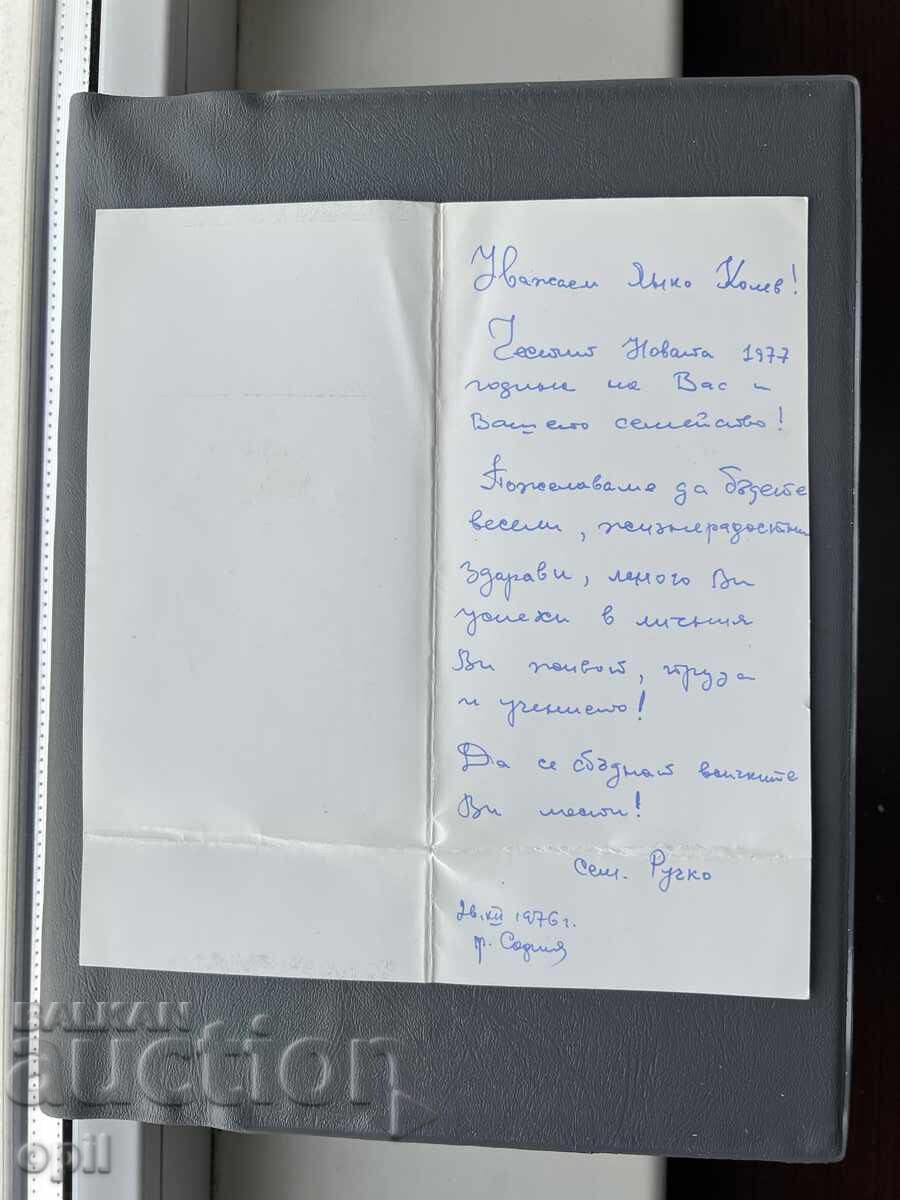 Уважаем Янко Колев!
Честит Новата 1977
година на Вас и
Вашето семейство!
Пожелаваме да бъдете
весели, жизнерадостни
здрави, много Ви
успехи в личния
Ви живот, труда
и учението!
Да се сбъднат всичките
Ви мечти!
Сем. Ручко
XII 1976 г.
гр. София
BALKAN
auction
opil